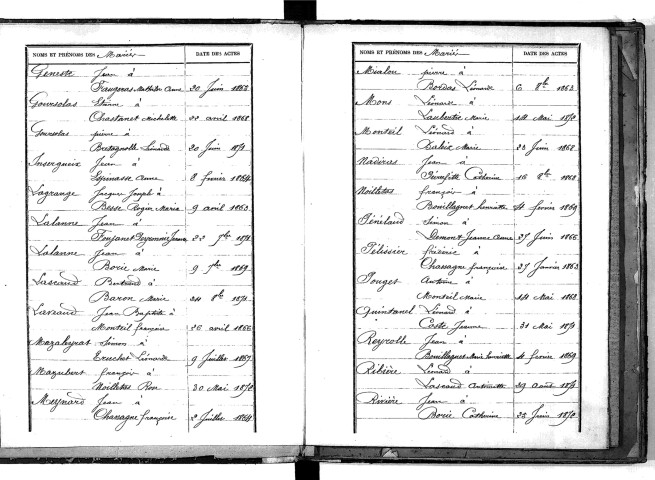 NOMS ET PRÉNOMS DES Mariés DATE DES ACTES
Geneste Jean à
Faugeras Mathilde Anne 20 Juin 1868
Goursolas Etienne à
Chastanet Michelette 22 avril 1868
Goursolas pierre à
Bretagnolle Léonarde 20 Juin 1871
Insergueix Jean à
Espinasse Anne 8 fevrier 1864
Lagrange Jacques Joseph à
Besse Rogier Maria 9 avril 1863
Lalanne Jean à
Foujanet Jeanne 22 7bre 1871
Lalanne Jean à
Borie Marie 9 7bre 1869
Lascaud Bertrand à
Baron Marie 24 8bre 1871
Lascaud Jean Baptiste à
Monteil françoise 26 avril 1866
Mazaleyrat Simon à
Eruchet Léonarde 9 Juillet 1867
Mazubert françois à
Noillettes Rose 30 Mai 1872
Meynard Jean à
Chassagne françoise 2 Juillet 1864
NOMS ET PRÉNOMS DES Mariés DATE DES ACTES
Mialon pierre à
Bordas Léonarde 6 8bre 1863
Mons Léonard à
Laubertie Marie 14 Mai 1872
Monteil Léonard à
Marie 23 Juin 1868
Nadiras Jean à
Pierrefitte Catherine 16 8bre 1868
Noillettes françois à
Bouillaguet henriette 4 fevrier 1869
Pénélaud Simon à
Demont Jeanne Anne 27 Juin 1866
Pélissier frédéric à
Chassagne françoise 27 Janvier 1863
Pouget Antoine à
Monteil Marie 14 Mai 1868
Quintanel Léonard à
Coste Jeanne 31 Mai 1871
Reyrolle Jean à
Bouillaguet Marie henriette 4 fevrier 1869
Ribière Léonard à
Lascaud Antoinette 29 aout 1871
Rivière Jean à
Borie Catherine 22 Juin 1872